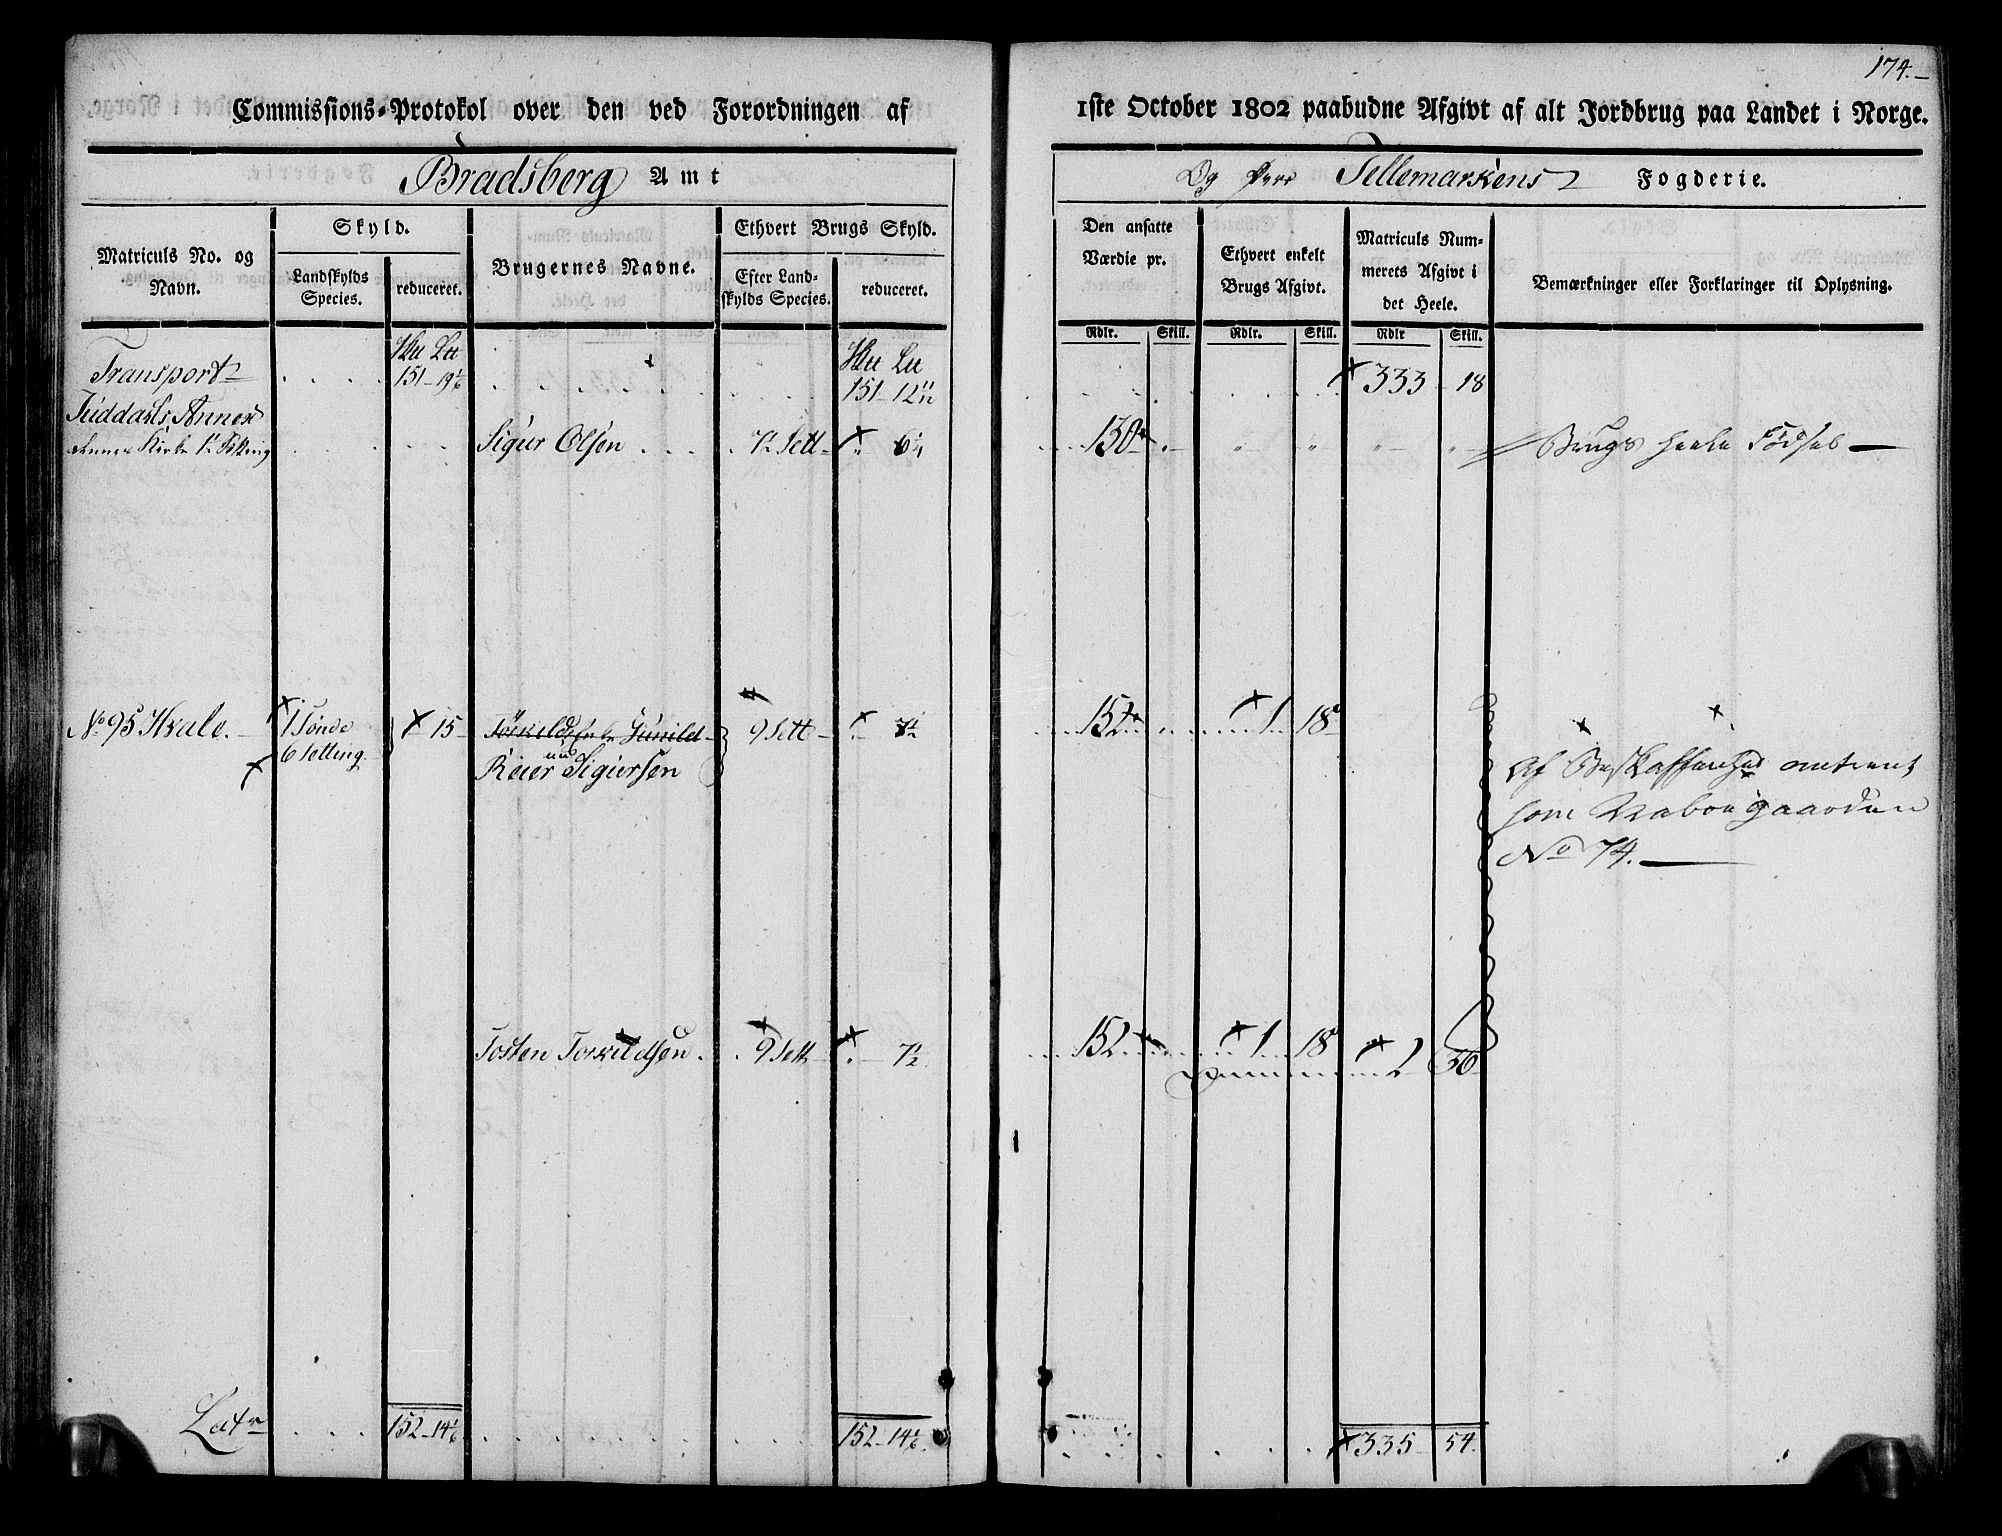 174.
Commissions-Protokol over den ved Forordningen af 1ste October 1802 paabudne Afgivt af alt Jordbrug paa Landet i Norge.
Bradsberg Amt
Og Tellemarkens Fogderie.
Matriculs No. og Navn.
Skyld.
Landskylds Species.
reduceret.
Brugernes Navne.
Ethvert Brugs Skyld.
Efter Landskylds Species.
reduceret.
Den ansatte Værdie pr.
Ethvert enkelt Brugs Afgivt.
Matriculs Nummerets Afgivt i det Heele.
Bemærkninger eller Forklaringer til Oplysning.
Rdlr. Skill. Rdlr. Skill. Rdlr Skill.
Hu Lu Hu Lu
Transport 151-19 1/6 151-12 333-18
Tuddals Annex
Kirke Sigur Olsen 7 1/2 Sett 6 1/4 130 Brugs heele Födsel
No 95 Hvale. 1 Tönde 15 9 Sett 7 1/2 152 1 18
6 Setting
Reier Sigursen
Af Beskaffenhed omtrent
som Naboe gaarden
No 74.
Tosten Torkildsen 9 Sett 7 1/2 152 1 18 2 36
Latr 152-14 1/6 152-14 1/6 335 54